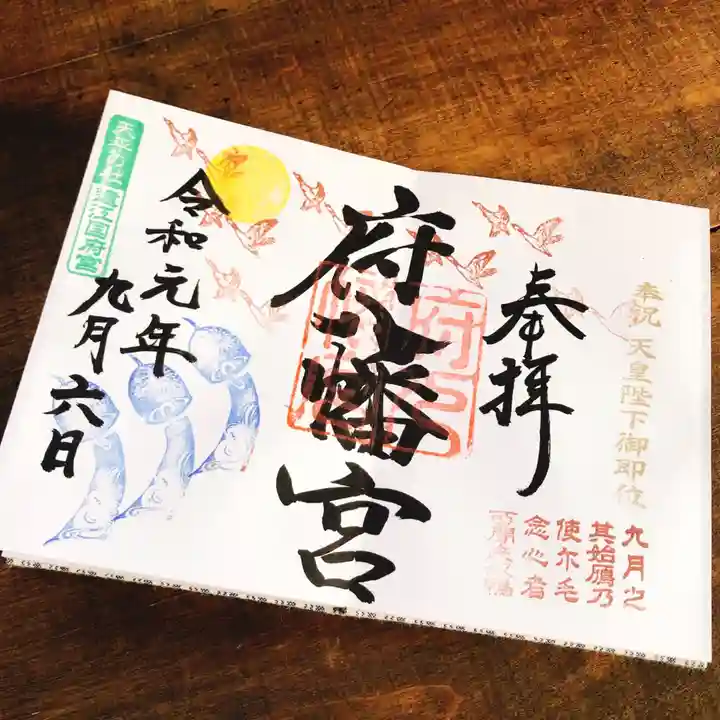 奉祝 天皇陛下御即位
九月之
其始鴈乃
使尓毛
念心者
奉拝
府八幡宮
令和元年
九月六日
遠江国府宮